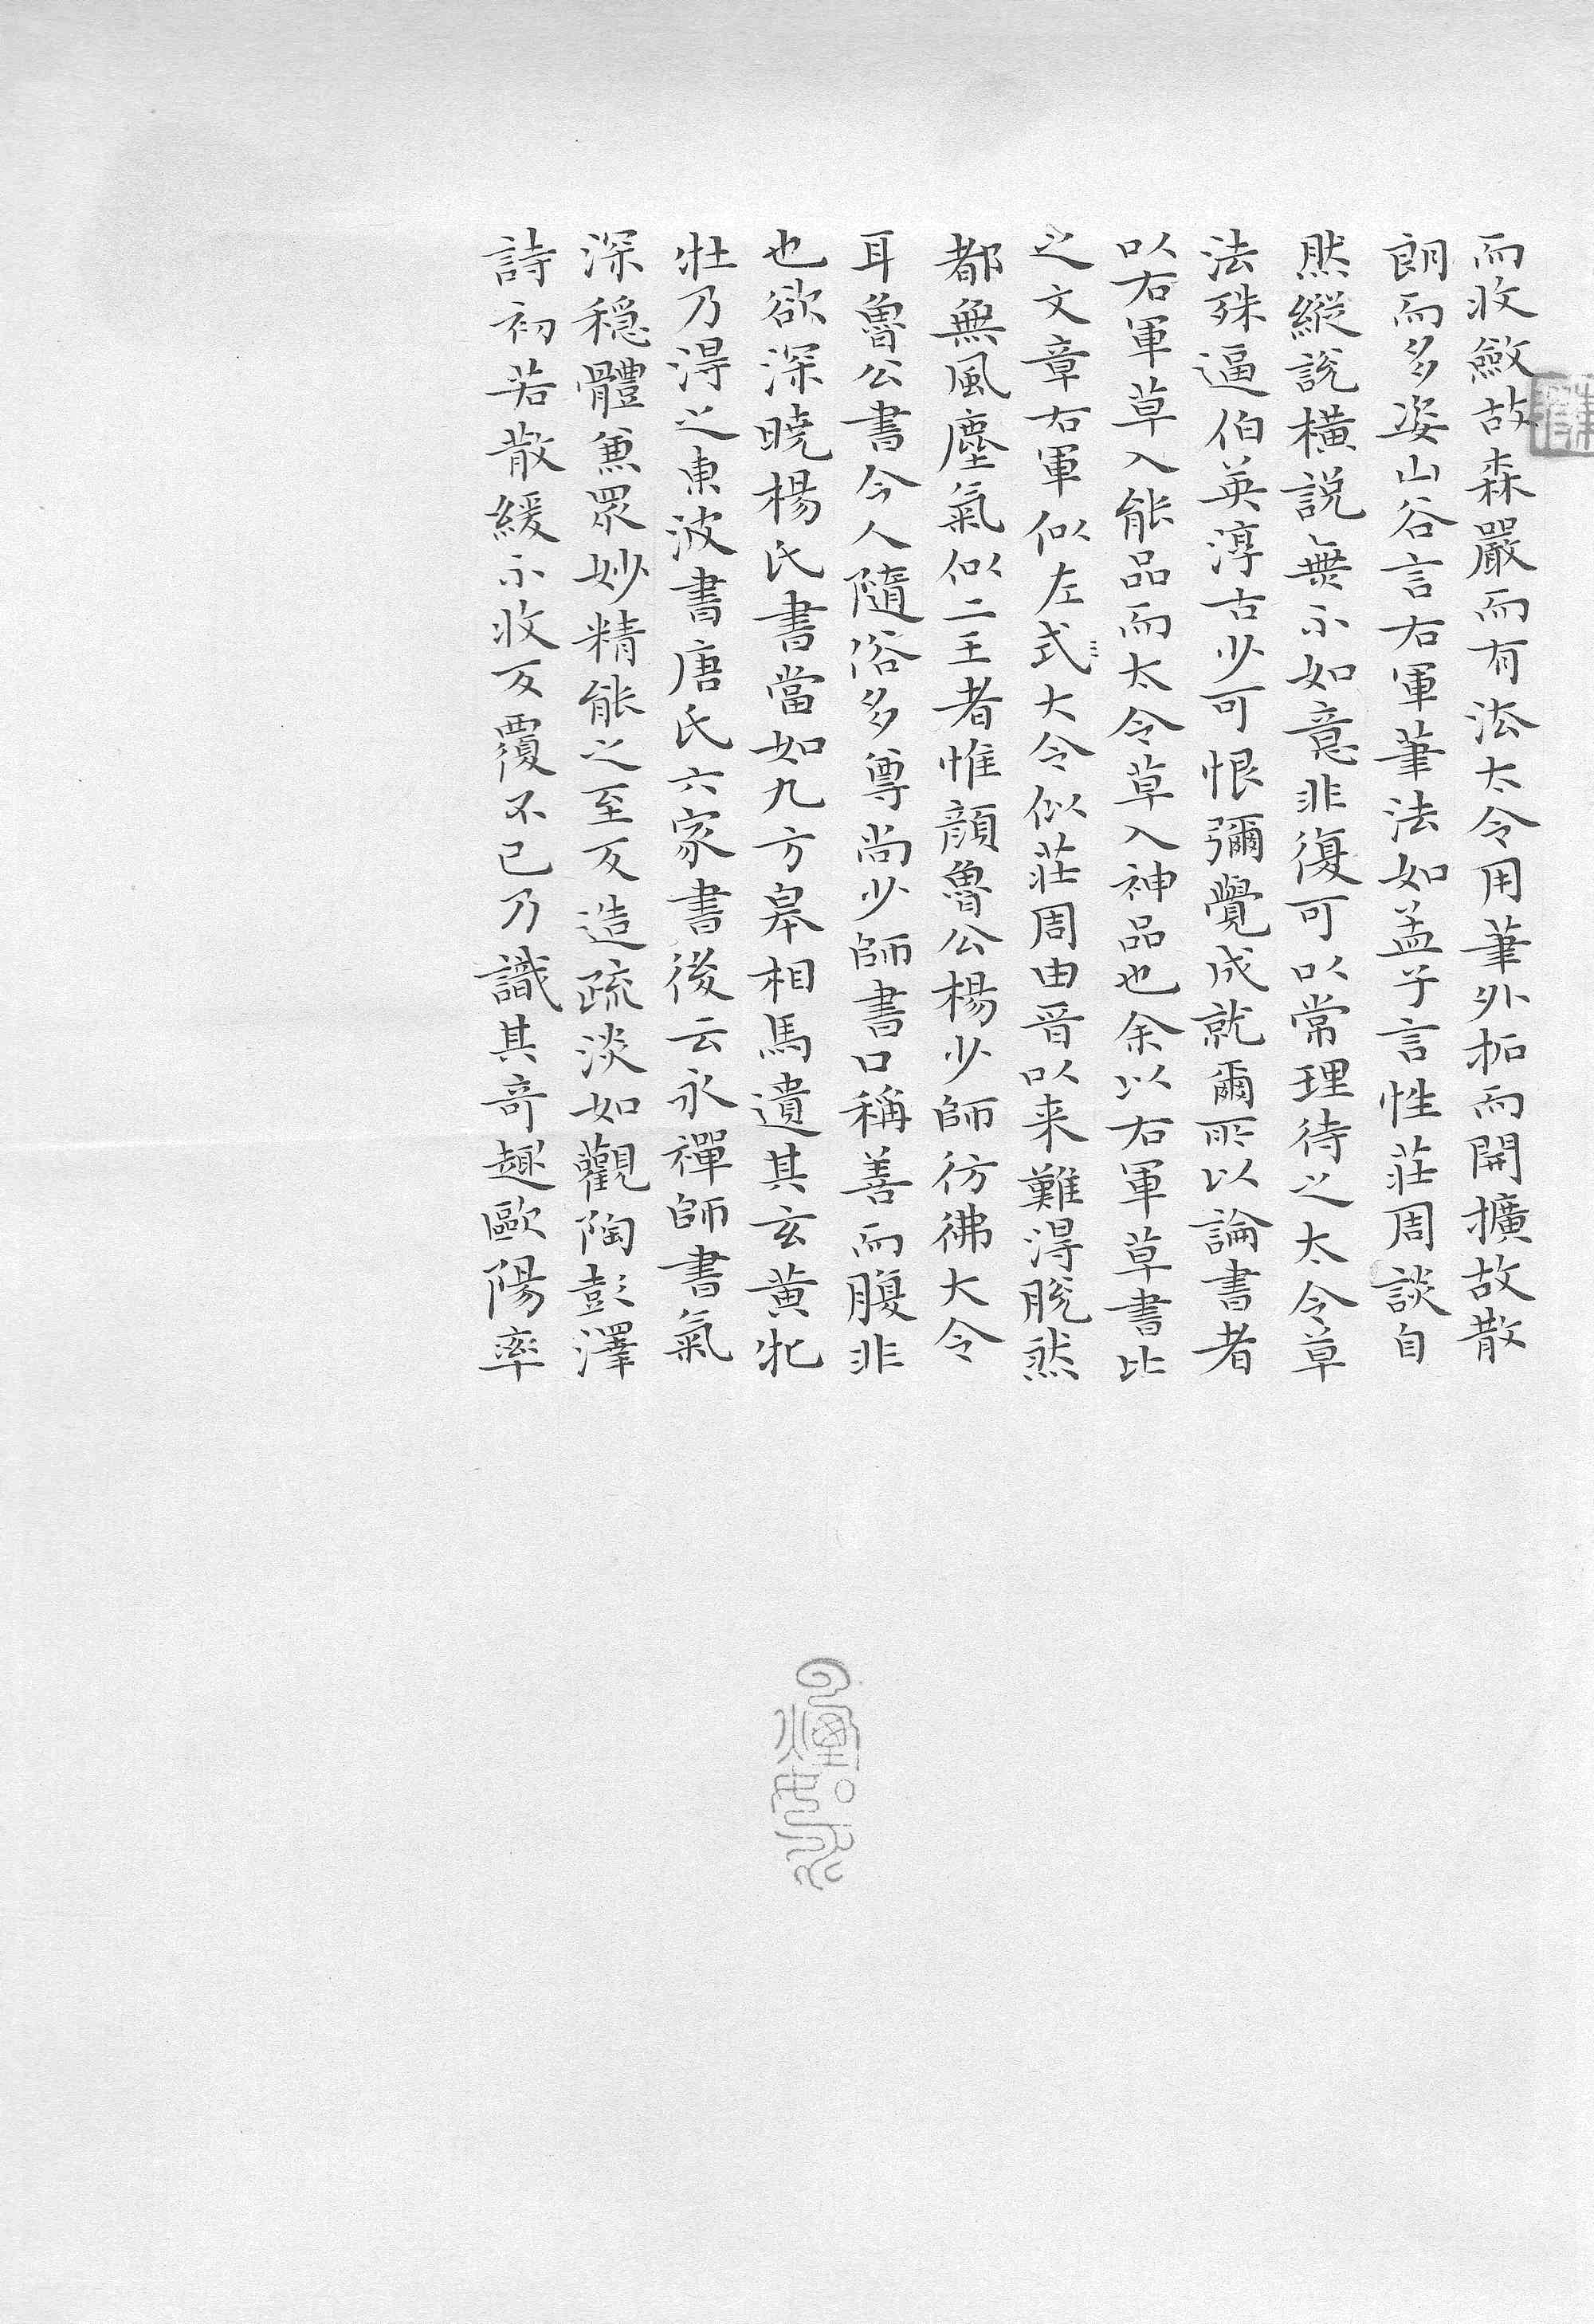 而收斂故森嚴而有法大令用筆外拓而開擴故散
朗而多姿山谷言右軍筆法如孟子言性莊周談自
然縱說橫說無不如意非復可以常理待之大令草
法殊逼伯英淳古少可恨彌覺成就爾所以論書者
以右軍草入能品而大令草入神品也余以右軍草書比
之文章右軍似左式大令似莊周由晉以来難得脫然
都無風塵氣似二王者惟顏魯公楊少師彷彿大令
耳魯公書今人隨俗多尊尚少師書口稱善而腹非
也欲深曉楊氏書當如九方皋相馬遺其玄黃牝
牡乃得之東波書唐氏六家書後云永禪師書氣
深穩體兼眾妙精能之至反造疏淡如觀陶彭澤
詩初若散緩不收反覆不已乃識其奇趣歐陽率